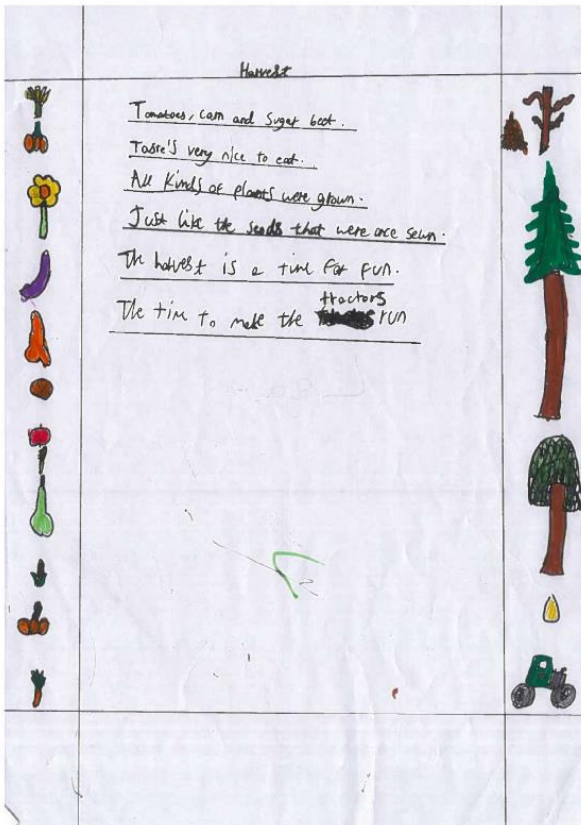 Harvest
Tomatoes, corn and Suger beet.
Taste's very nice to eat.
All Kinds of plants were grown.
Just like the seeds that were once sewn.
The harvest is a time for fun.
The time to make the tractors run